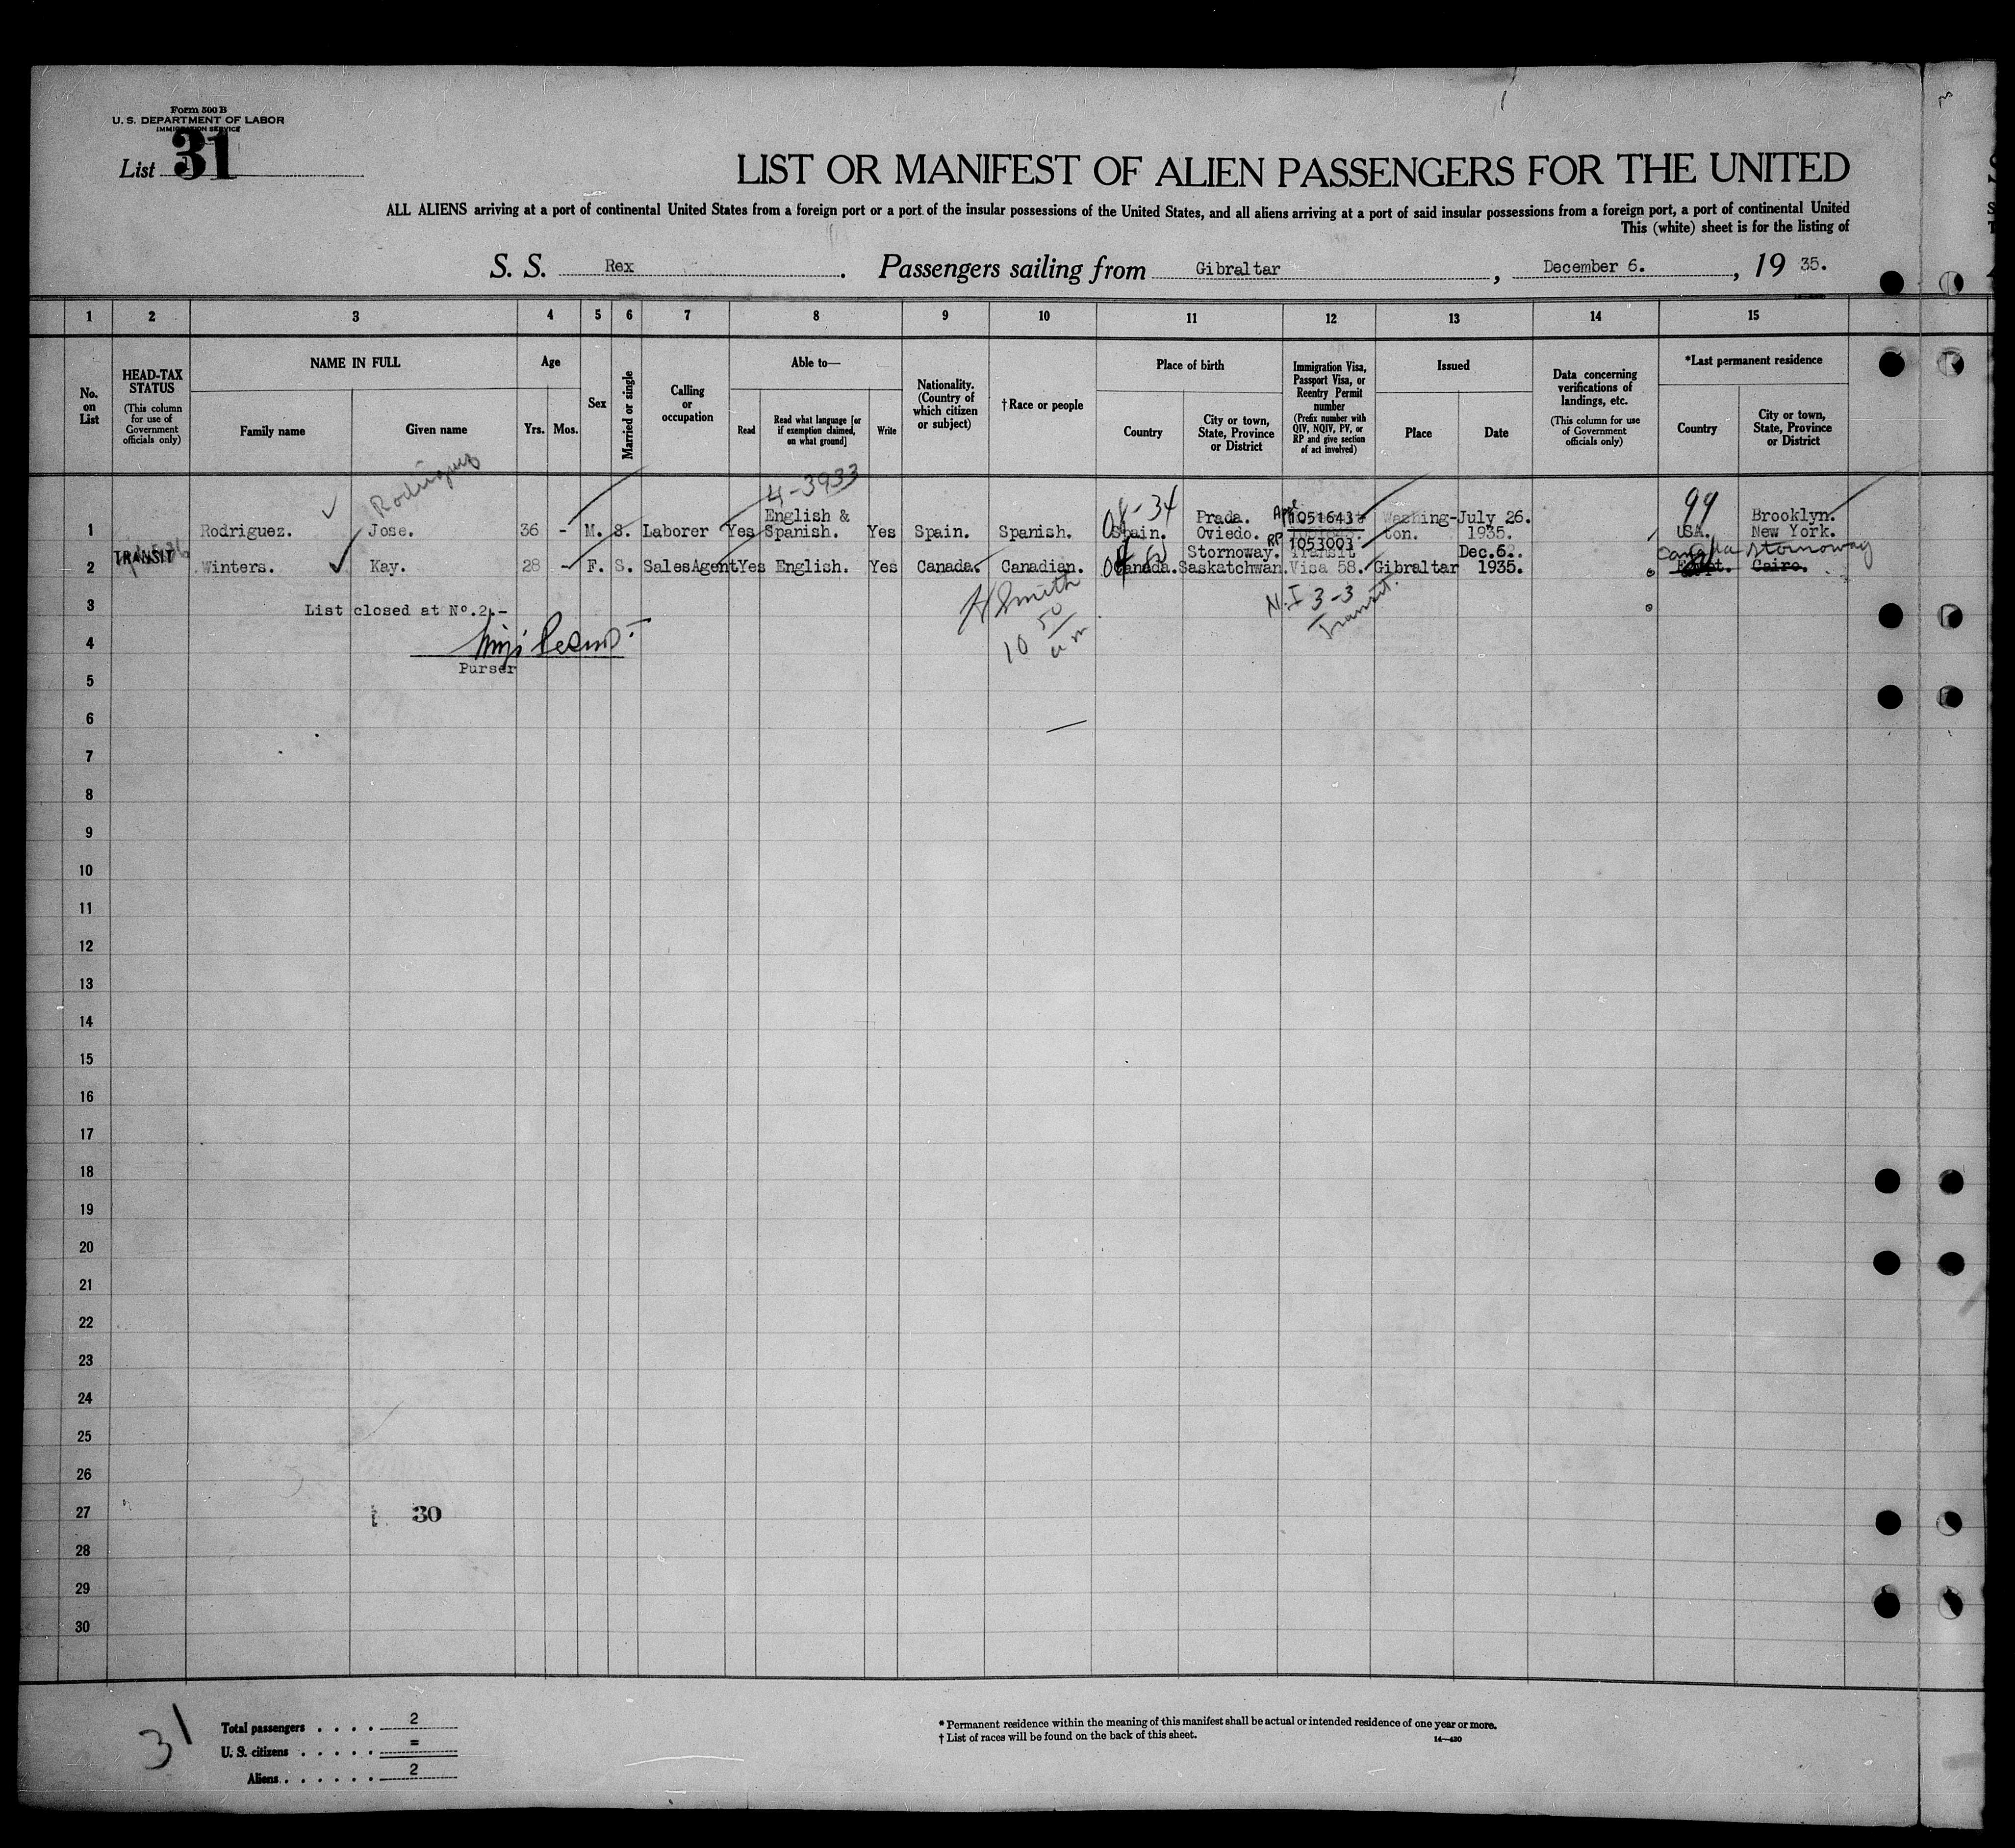 Form 500 B
U. S. DEPARTMENT OF LABOR
IMMIGRATION SERVICE
List 31
LIST OR MANIFEST OF ALIEN PASSENGERS FOR THE UNITED
ALL ALIENS arriving at a port of continental United States from a foreign port or a port of the insular possessions of the United States, and all aliens arriving at a port of said insular possessions from a foreign port, a port of continental United
This (white) sheet is for the listing of
S. S. Rex. Passengers sailing from Gibraltar, December 6., 19 35.
1 2 3 4 5 6 7 8 9 10 11 12 13 14 15
No. on List
HEAD-TAX STATUS
(This column for use of Government officials only)
NAME IN FULL
Family name
Given name
Age
Yrs. Mos.
Sex
Married or single
Calling or occupation
Able to—
Read
Read what language [or if exemption claimed, on what ground]
Write
Nationality. (Country of which citizen or subject)
†Race or people
Place of birth
Country
City or town, State, Province or District
Immigration Visa, Passport Visa, or Reentry Permit number
(Prefix number with QIV, NQIV, PV, or RP and give section of act involved)
Issued
Place
Date
Data concerning verifications of landings, etc.
(This column for use of Government officials only)
*Last permanent residence
Country
City or town, State, Province or District
Rodriguez
4-3933
99
1 Rodriguez. Jose. 36 - M. S. Laborer Yes English & Spanish. Yes Spain. Spanish. Spain. Prada. Oviedo. 1051643 RP 1053003 Washing-ton. July 26. 1935. USA. Brooklyn. New York.
TRANSIT
2 Winters. Kay. 28 - F. S. SalesAgent Yes English. Yes Canada. Canadian. Canada. Stornoway. Saskatchwan. Transit Visa 58. Gibraltar Dec.6. 1935. Canada Stornoway Egypt. Cairo.
3 List closed at Nº.2.-
H Smith
10 50 am
N.I 3-3
Transit.
4
Purser
5
6
7
8
9
10
11
12
13
14
15
16
17
18
19
20
21
22
23
24
25
26
27 30
28
29
30
31
Total passengers . . . . 2
U. S. citizens . . . . . =
Aliens . . . . . . 2
* Permanent residence within the meaning of this manifest shall be actual or intended residence of one year or more.
† List of races will be found on the back of this sheet.
14—430